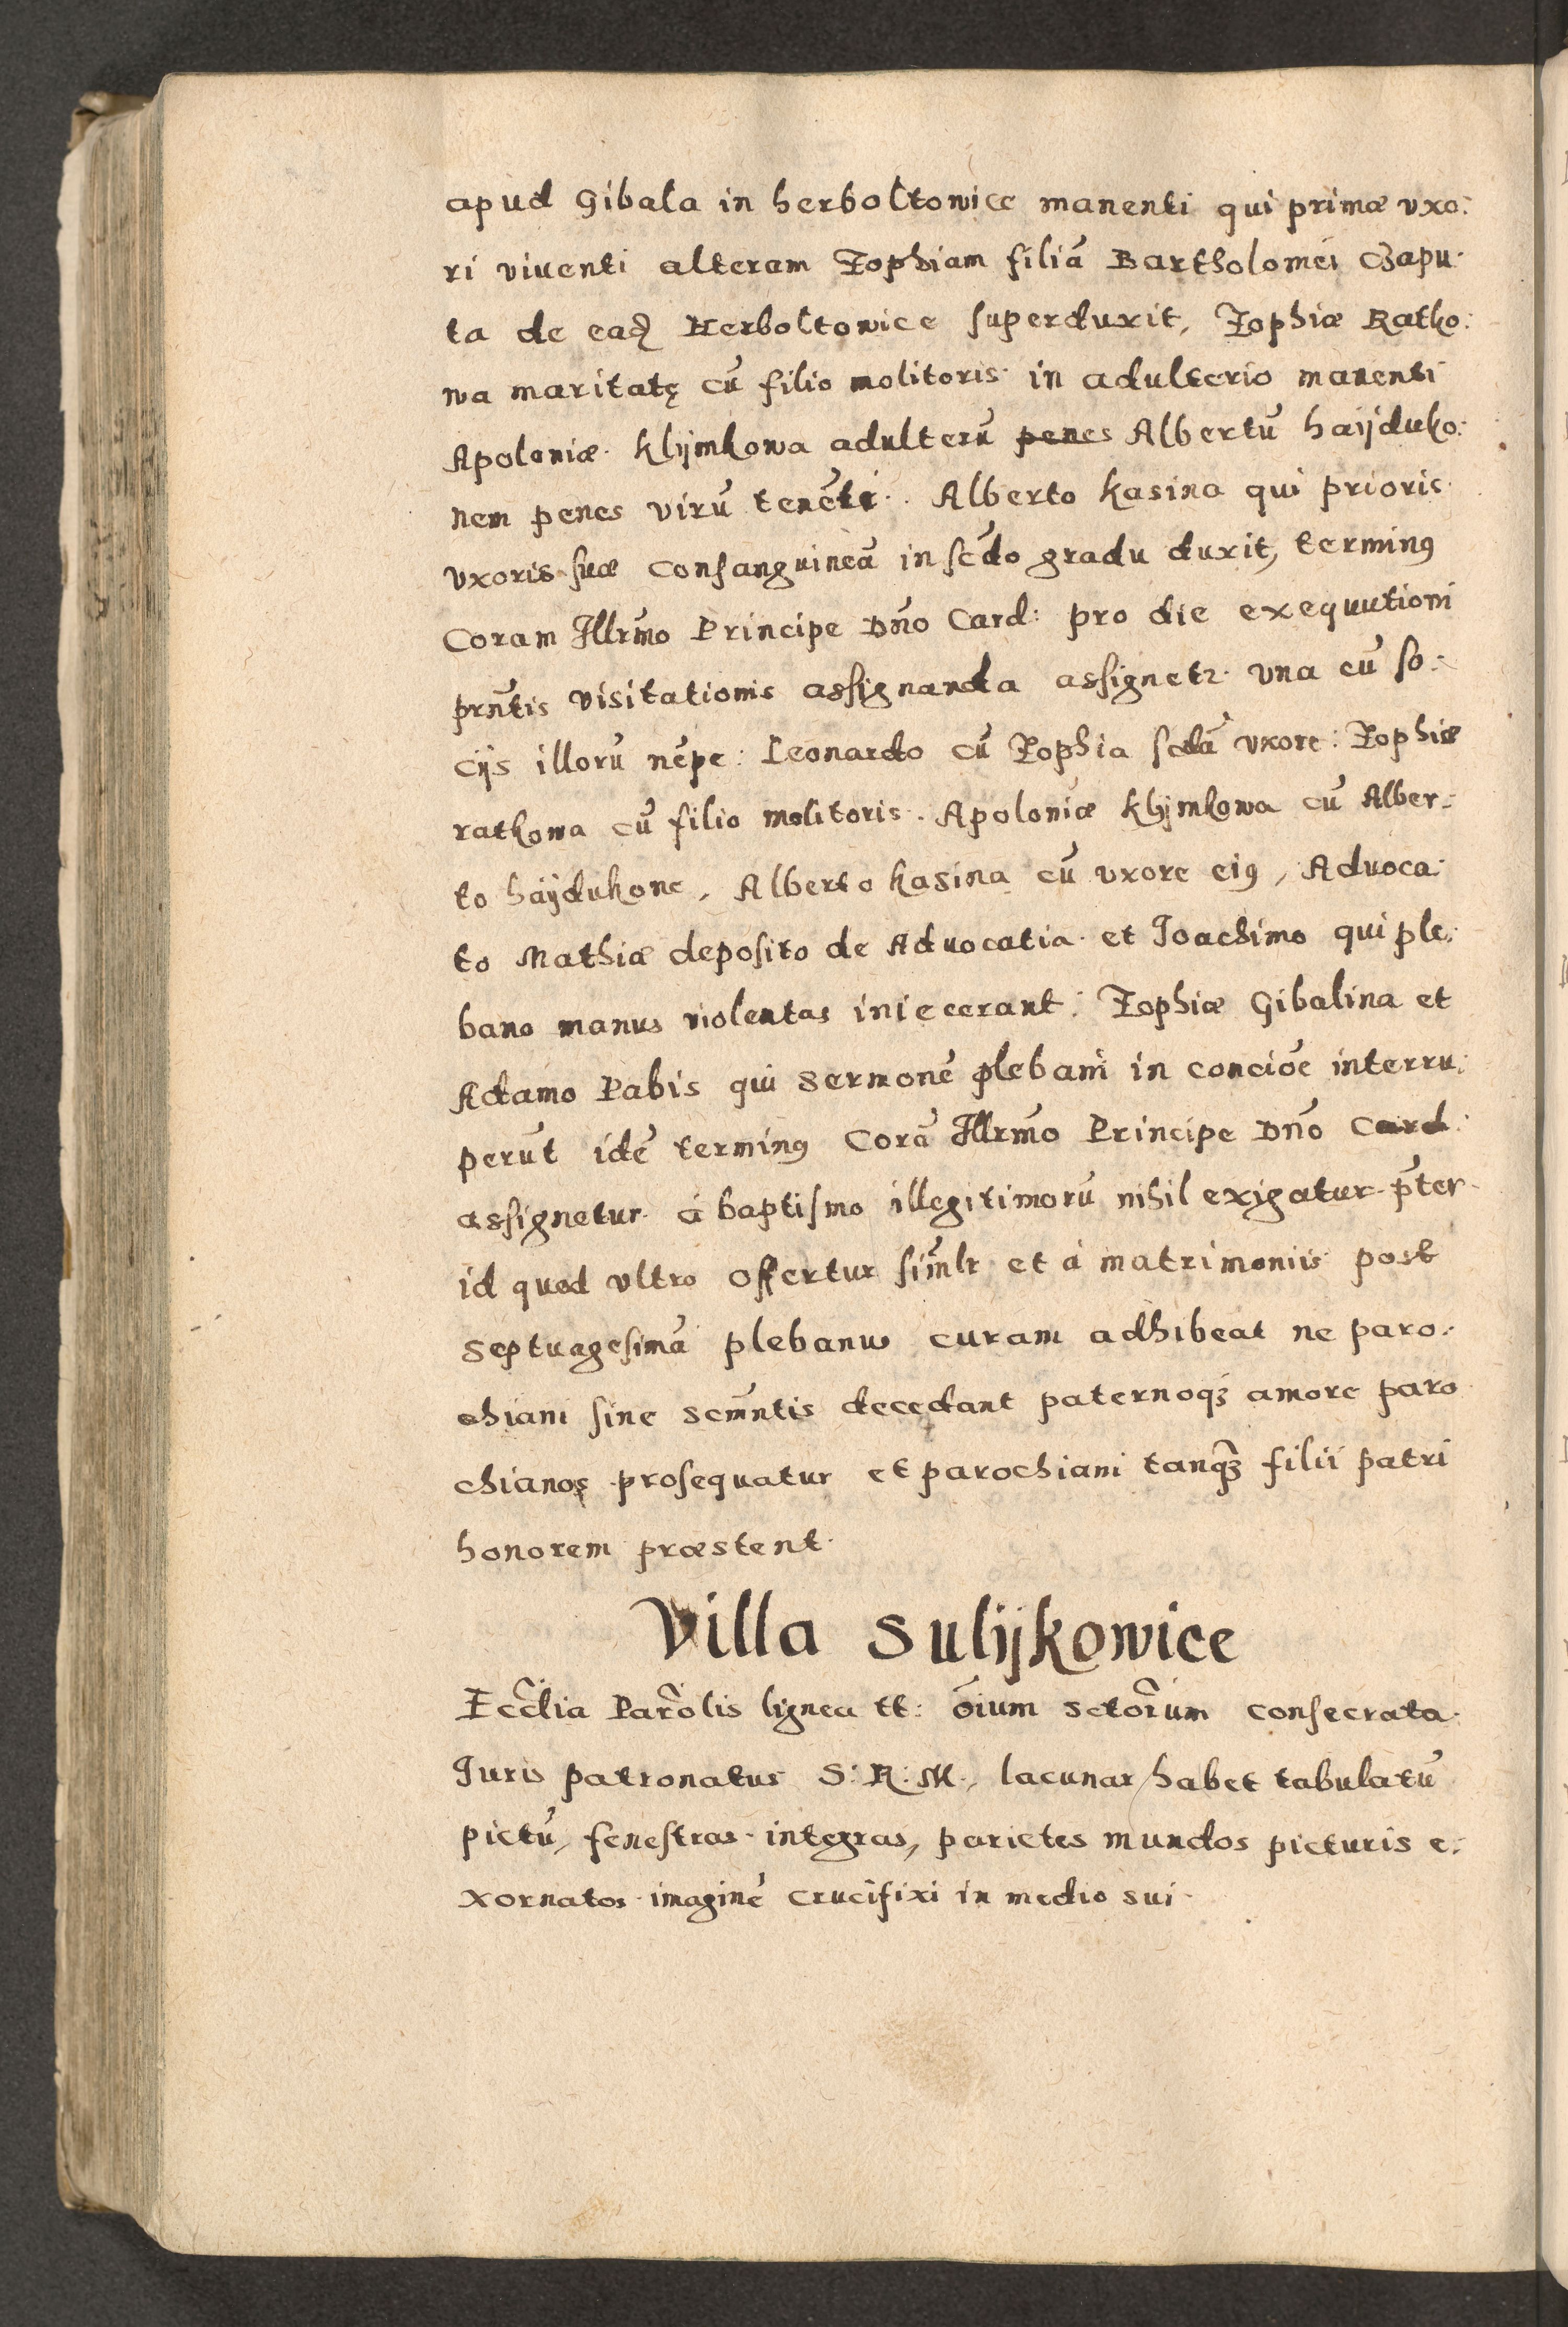 apud Gibala in herboltowice manenti qui primæ vxo:
ri viuenti alteram Zophiam filiā Bartholomei Czapu:
ta de eadȝ Herboltowice superduxit, Zophiæ Ratko:
wa maritatę cū filio molitoris in adulterio manenti
Apoloniæ klijmkowa adulterū penes Albertū haijduko:
nem penes virū tenēti. Alberto kasina qui prioris
vxoris suæ consanguineā in scdo gradu duxit, terminꝰ
Coram Illrmo Principe Dño Card: pro die exequutioni
prñtis visitationis assignanda assignetr vna cū so:
cijs illorū nēpe: Leonardo cū Zophia scdā vxore: Zophiæ
ratkowa cū filio molitoris. Apoloniæ klijmkowa cū Alber:
to haijdukone, Alberto kasina cū vxore eiꝰ, Aduoca:
to Mathiæ deposito de Aduocatia et Joachimo qui ple:
bano manus violentas iniecerant: Zophiæ Gibalina et
Adamo Pabis qui sermonē plebani in concioē interru:
perūt idē terminꝰ Corā Illrmo Principe Dño Card:
assignetur á baptismo illegitimorū nihil exigatur p̄ter
id quod vltro offertur simlr et á matrimoniis post
septuagesimā plebanus curam adhibeat ne paro:
chiani sine scm̄ntis decedant paternoqȝ amore paro
chianos prosequatur et parochiani tanqȝ filii patri
honorem præstent.
Villa Sulijkowice
Eccl̃ia Parõlis lignea tt: ōium sctorum consecrata.
Juris patronatus S: R: M., lacunar habet tabulatū
pictū, fenestras integras, parietes mundos picturis e:
xornatos imaginē crucifixi in medio sui.